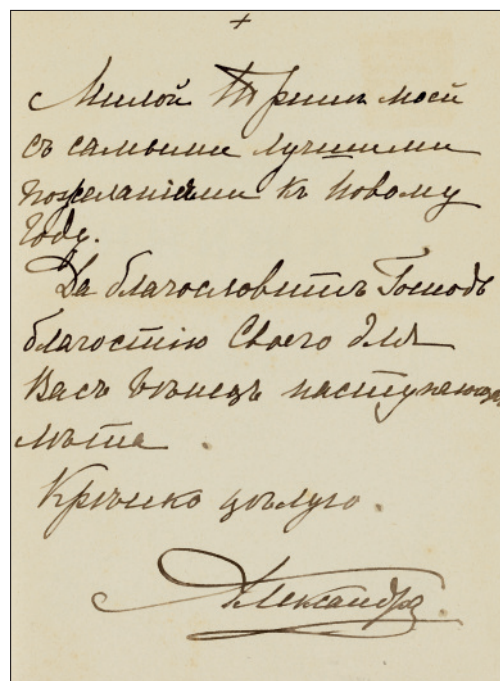 +
Милой Трине моей
съ самыми лучшими
пожеланіями къ Новому
Году.
Да благословитъ Господь
благостію Своего для
Васъ вѣнецъ наступающаго
лѣта.
Крѣпко цѣлую.
Александра.